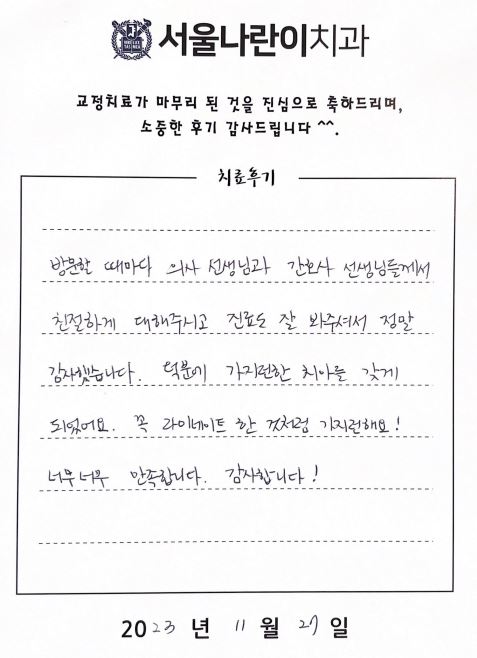 서울나란이치과
교정치료가 마무리 된 것을 진심으로 축하드리며,
소중한 후기 감사드립니다 ^^.
치료후기
방문할 때마다 의사 선생님과 간호사 선생님들께서
친절하게 대해주시고 진료도 잘 봐주셔서 정말
감사했습니다. 덕분에 가지런한 치아를 갖게
되었어요. 꼭 라미네이트 한 것처럼 가지런해요!
너무너무 만족합니다. 감사합니다!
2023 년 11 월 27 일